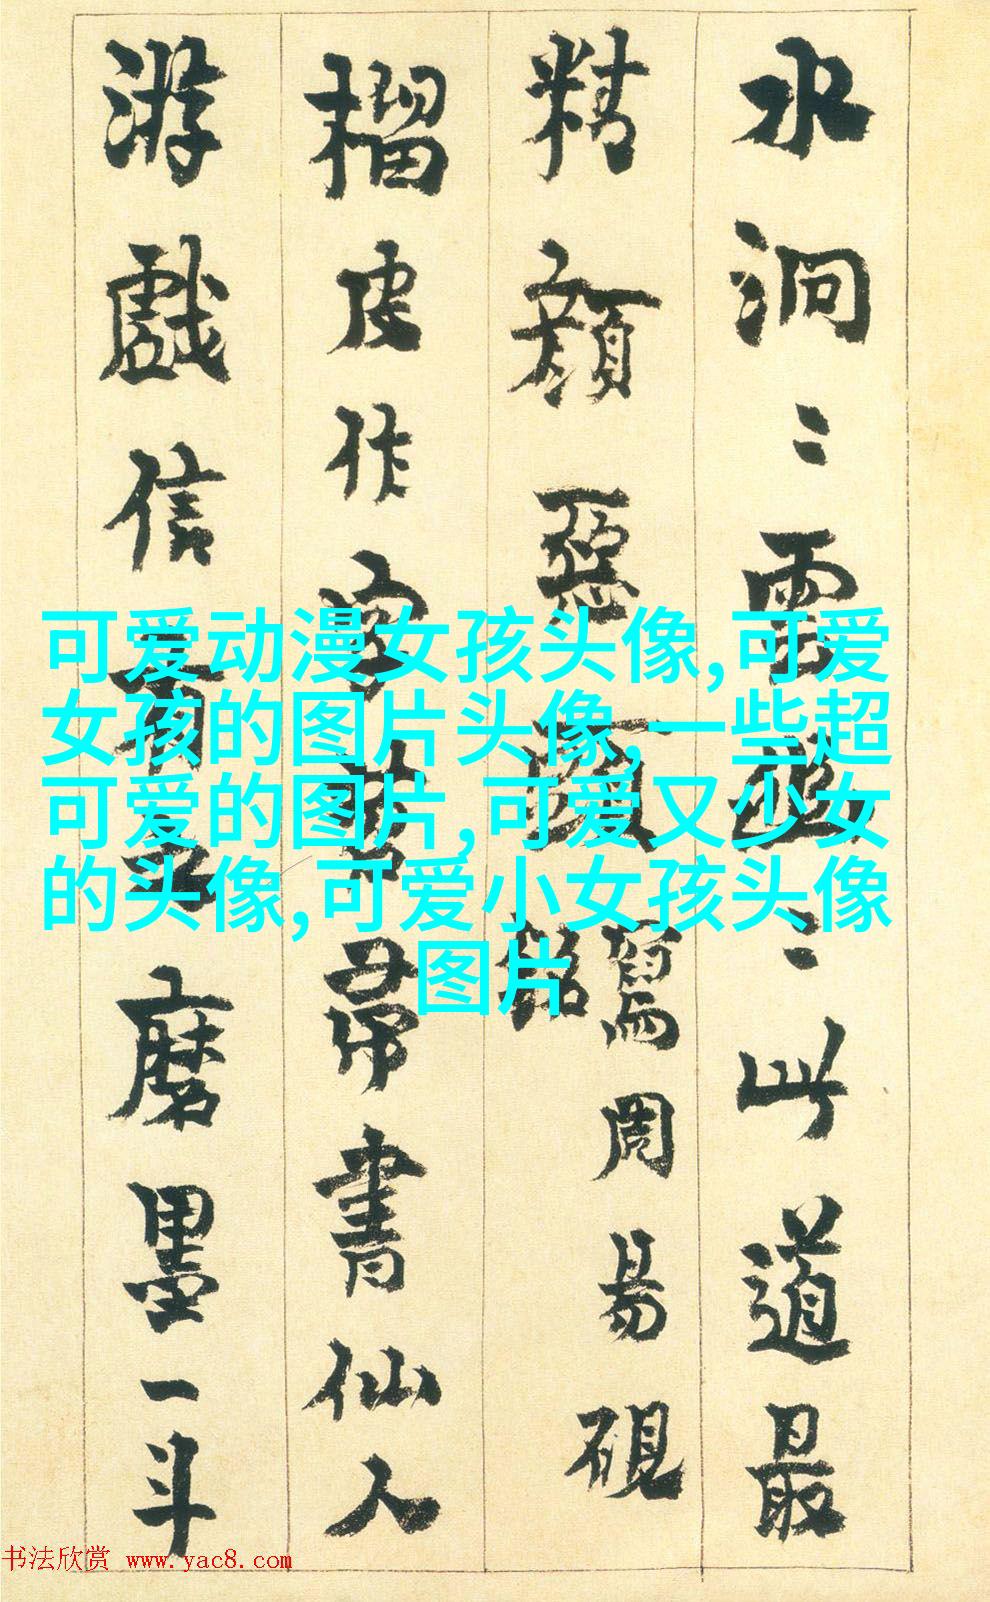 水洞〻雲〻此道最
精顏惡頭銘 寫周易硯
榴皮作字苕帚書仙人
游戲信有之磨墨一斗
可爱动漫女孩头像,可爱
女孩的图片头像,一些超
可爱的图片,可爱又少女
的头像,可爱小女孩头像
图片
书法欣赏 www.yac8.com